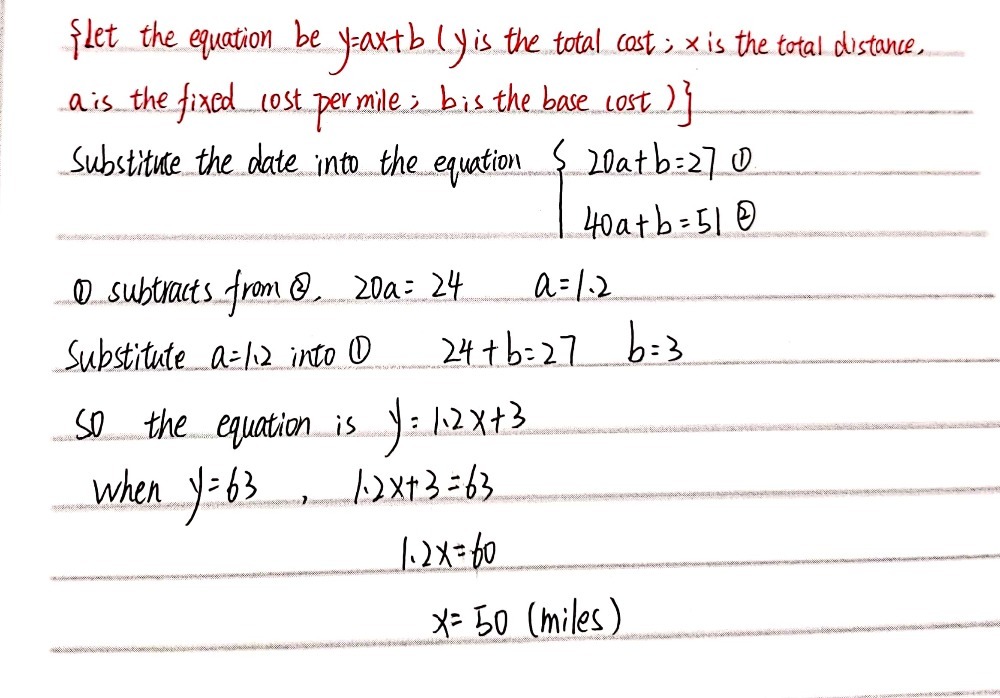 {let the equation be y=ax+b (y is the total cost; x is the total distance,
a is the fixed cost per mile; b is the base cost)}
Substitute the date into the equation { 20a+b=27 ①
40a+b=51 ②
① subtracts from ②, 20a=24 a=1.2
Substitute a=1.2 into ① 24+b=27 b=3
SO the equation is y=1.2x+3
when y=63 , 1.2x+3=63
1.2x=60
x=50 (miles)